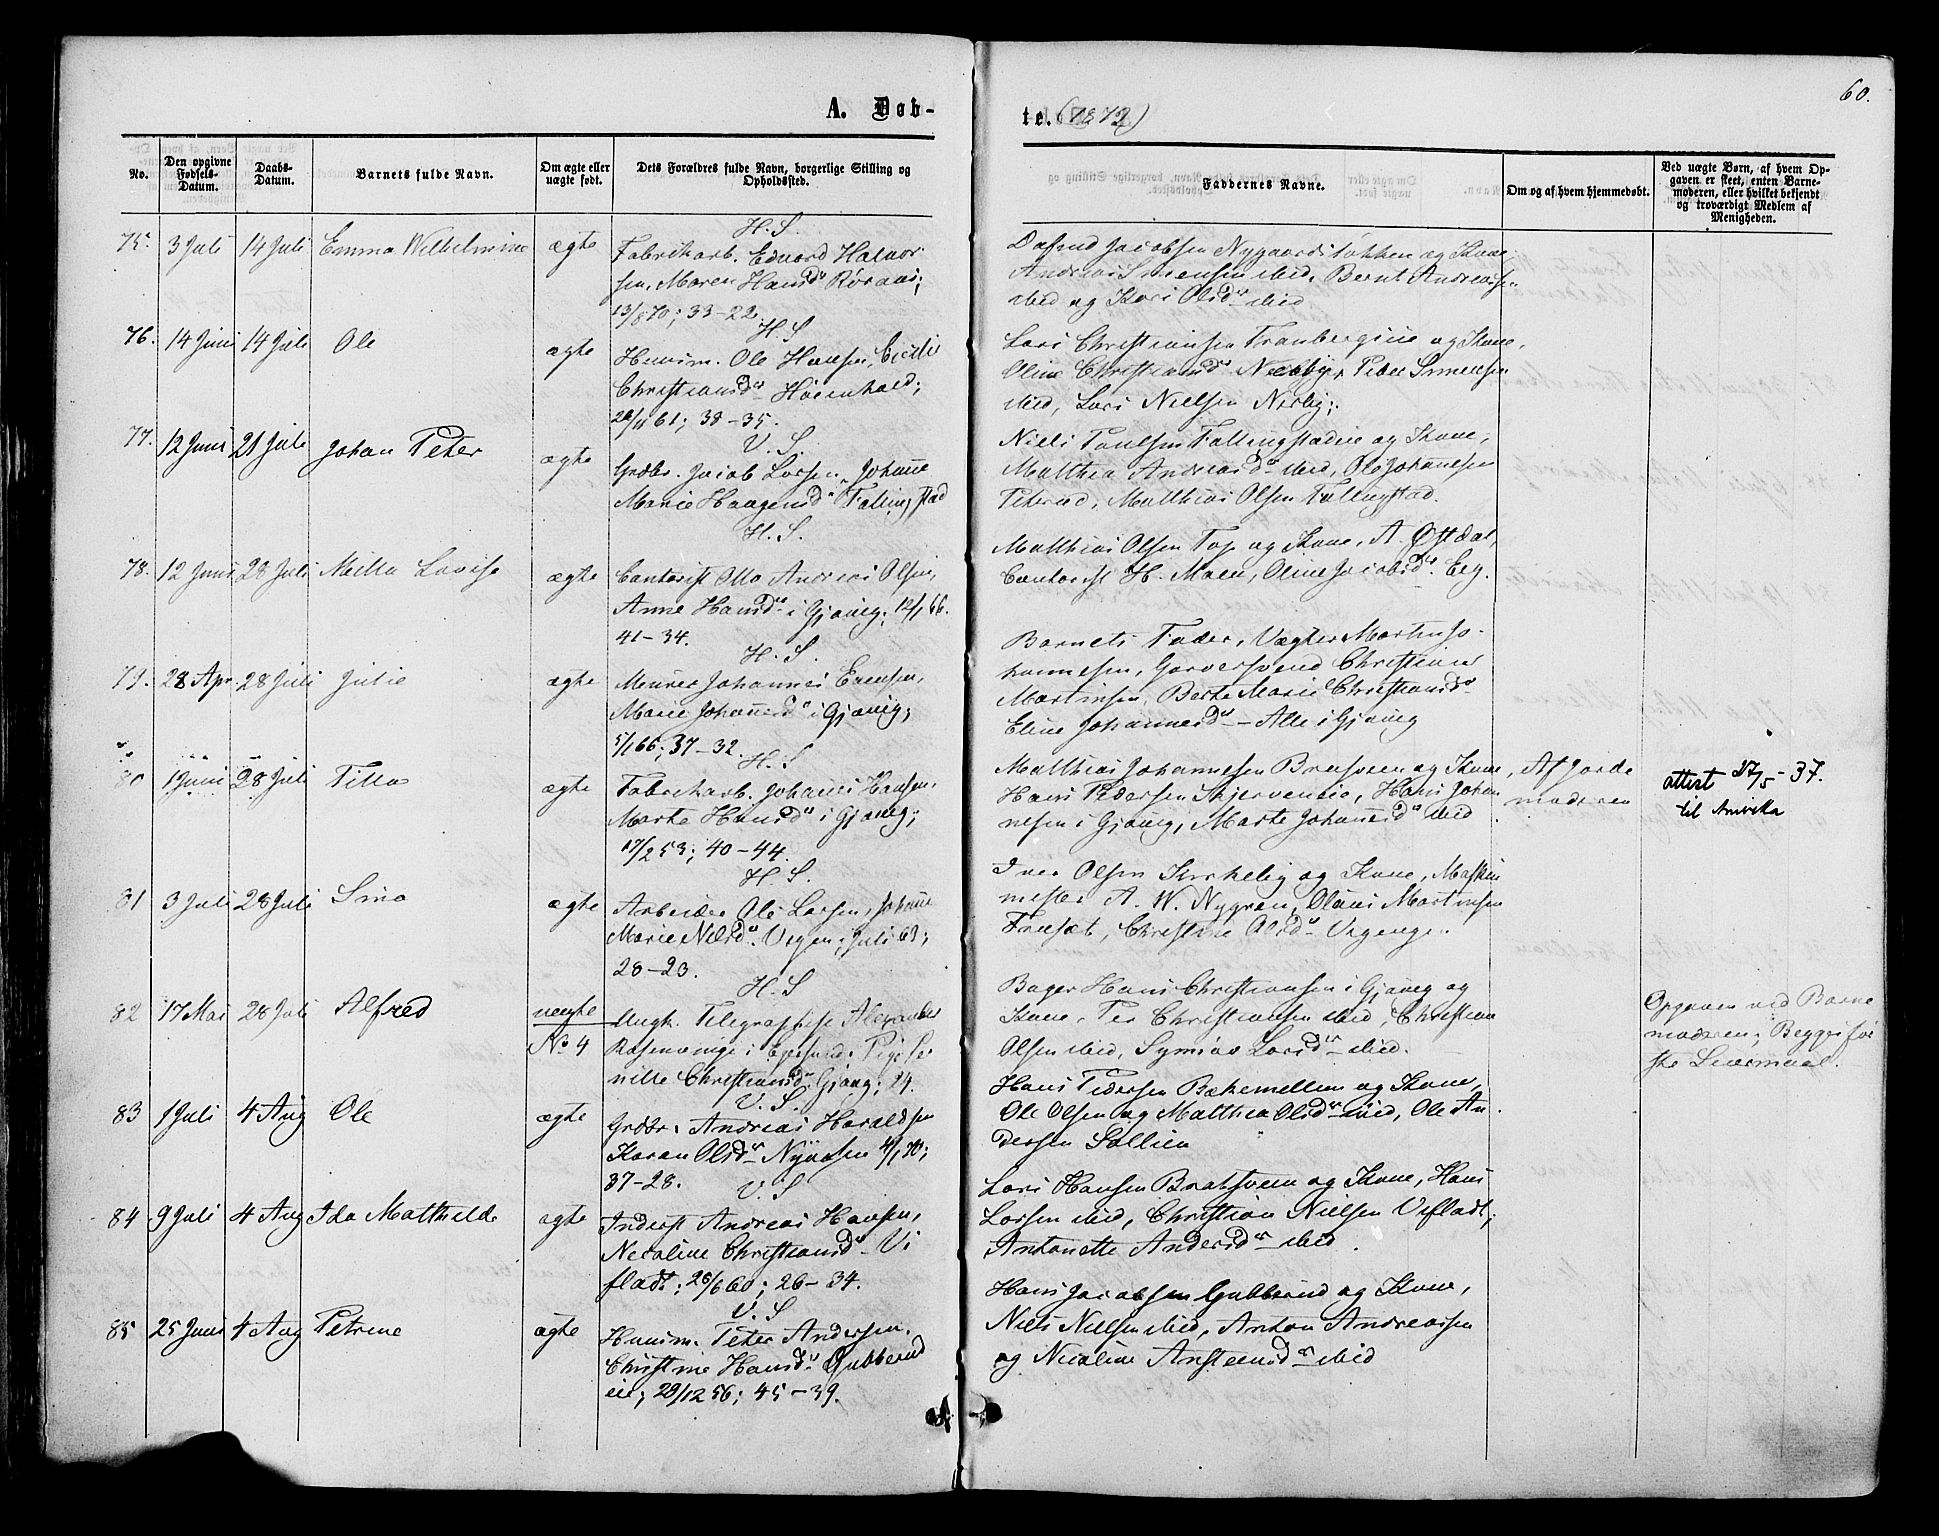 60.
A. Døb-
te. (1872)
No.
Den opgivne Fødsels-Datum.
Daabs-Datum.
Barnets fulde Navn.
Om ægte eller uægte født.
Dets Forældres fulde Navn, borgerlige Stilling og Opholdssted.
Faddernes Navne.
Om og af hvem hjemmedøbt.
Ved uægte Børn, af hvem Opgaven er skeet, enten Barnemoderen, eller hvilket bekjendt og troværdigt Medlem af Menigheden.
H. S.
75. 3 Juli 14 Juli Emma Wilhelmine ægte
Fabrikarb. Edvard Halvor
sen, Maren Hansd
13/8 70; 33-22.
Jacobsen Nygaardsløkken og Kone
Andreas Simensen ibid, Bernt Andreassen
ibid og Kari Olsdr ibid
H. S
76. 14 Juni 14 Juli Ole ægte
Huusm. Ole Hansen, Cicilie
Christiansdr
61; 38-35.
Lars Christiansen Tranbergeie og Kone,
Oline Christiansdr Nærby, Peder Simensen
ibid, Lars Nielsen Nerby.
V. S.
77. 12 Juni 21 Juli Johan Peter ægte
Grdbr. Jacob Larsen, Johanne
Marie Haagensdr Fallingstad
Niels Paulsen Fallingstadeie og Kone,
Matthea Andreasdr ibid, Ole Johannesen
Peterud, Matthias Olsen Fallingstad.
H. S.
78. 12 Juni 28 Juli Milla Lovise ægte
Cantorist Otto Andreas Olsen,
Anne Hansdr i Gjøvig; 12/1 66.
41-34.
Matthias Olsen Top og Kone, A. Østdal,
Cantorist H. Moen, Oline Jacobsdr Eeg.
H. S.
79. 28 Apr 28 Juli Julie ægte
Murer Johannes Evensen,
Marie Johannesdr i Gjøvig;
5/1 66; 37-32.
Barnets Fader, Vægter Martin Jo-
hannesen, Garversvend Christian
Martinsen, Berte Marie Christiansdr
Eline Johannesdr - Alle i Gjøvig
H. S
80 1 Juni 28 Juli Tilla ægte
Fabrikarb. Johannes Hansen,
Marte Hansdr i Gjøvig;
17/2 53; 40-44.
Matthias Johannesen Brasveen og Kone
Hans Pedersen Skjerveneie, Hans Johan
nesen i Gjøvig, Marte Johannesdr ibid
Af Jorde
moderen
attest 27/5-37.
til Amerika
H. S.
81 3 Juli 28 Juli Sina ægte
Arbeider Ole Larsen, Johanne
Marie Nilsdr Vigen; Juli 63;
28-23.
Iver Olsen Kirkelig og Kone, Maskin
mester A. W. Nygren, Olaus Martinsen
Fruset, Christine Olsdr
H. S
82 17 Mai 28 Juli Alfred uægte
No 4
Ungk. Telegraphist Alexander
Rosenvinge i Egersund; Pige Per
nille Christiansdr Gjøvig; 24.
Bager Hans Christiansen i Gjøvig og
Kone, Per Christiansen ibid, Christian
Olsen ibid, Larsdr ibid.
Opgaven ved Barne
moderen; Begges før
ste Leiermaal.
V. S.
83 1 Juli 4 Aug Ole ægte
Grdbr. Andreas Haraldsen
Karen Olsdr 4/1 70;
37-28.
Hans Pedersen Bækemellem og Kone,
Ole Olsen og Matthea Olsdr ibid, Ole An-
dersen Sollien
V. S
84 9 Juli 4 Aug Ida Mathilde ægte
Inderst Andreas Hansen,
Nicoline Christiansdr Vi
fladt; 26/6 60; 26-34.
Lars Hansen Bratsveen og Kone, Hans
Larsen ibid, Christian Nielsen Vifladt,
Antonette Andersdr ibid.
V. S
85 25 Juni 4 Aug Petrine ægte
Huusm. Peter Andersen,
Christine Hansdr Gubberud
eie; 29/12 56; 45-39.
Hans Jacobsen Gubberud og Kone,
Niels Nielsen ibid, Anton Andreassen
og Nicoline Ansteensdr ibid